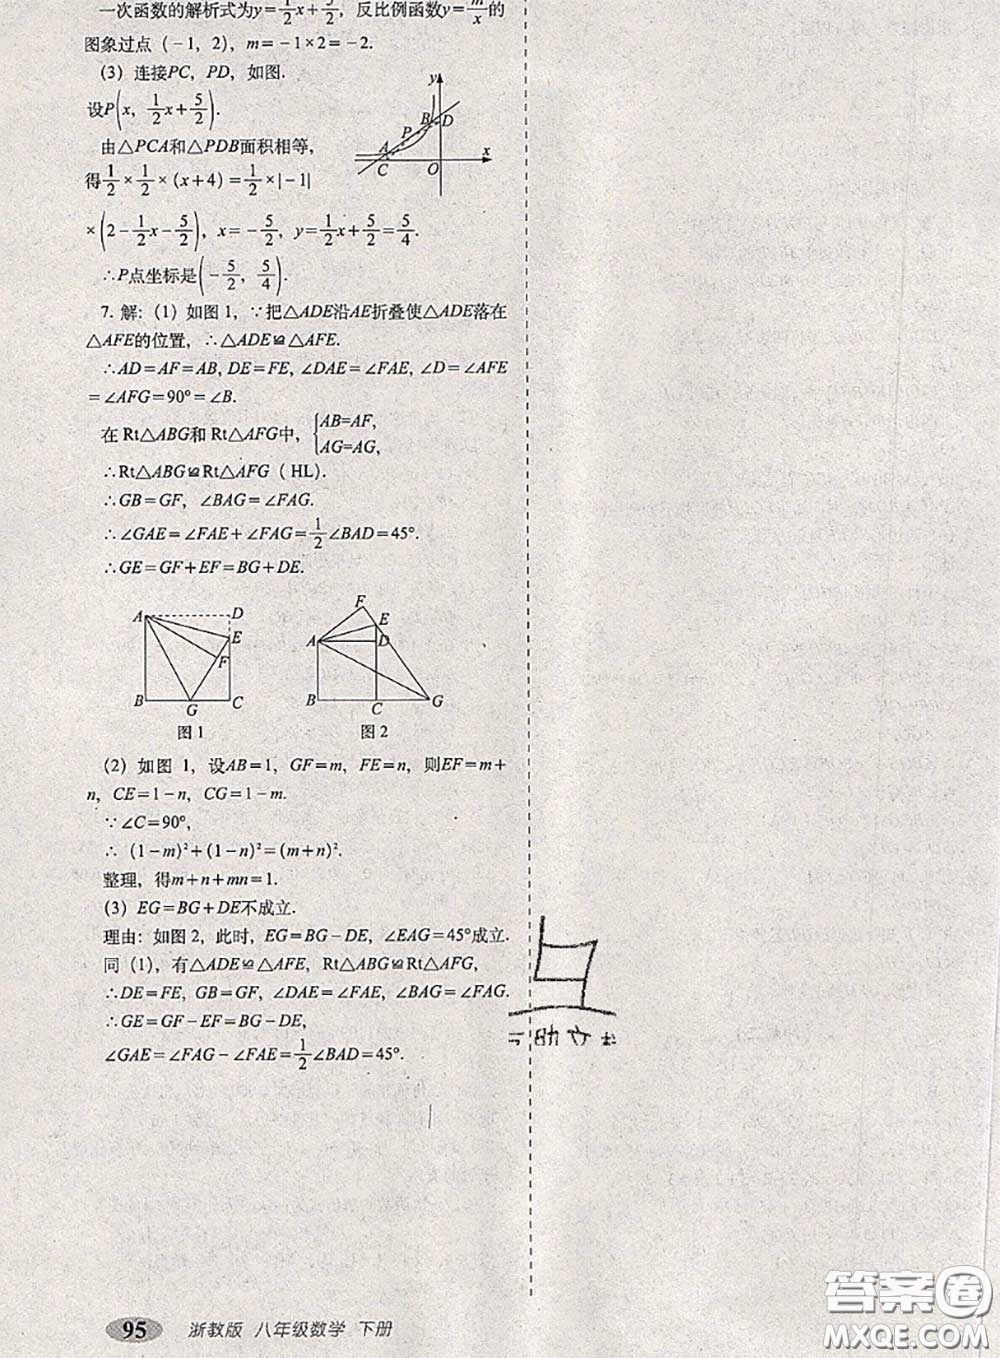 一次函数的解析式为y=1/2x+5/2,反比例函数y=m/x的
图象过点(-1,2),m=-1×2=-2.
(3)连接PC,PD,如图.
设P(x, 1/2x+5/2).
由△PCA和△PDB面积相等,
得1/2×1/2×(x+4)=1/2×|-1|
×(2-1/2x-5/2),x=-5/2,y=1/2x+5/2=5/4.
∴P点坐标是(-5/2, 5/4).
y
B
D
P
A
C
O
x
7. 解:(1)如图1,∵把△ADE沿AE折叠使△ADE落在
△AFE的位置,∴△ADE≌△AFE.
∴AD=AF=AB, DE=FE, ∠DAE=∠FAE, ∠D=∠AFE
=∠AFG=90°=∠B.
在Rt△ABG和Rt△AFG中,{AB=AF,
AG=AG,
∴Rt△ABG≌Rt△AFG(HL).
∴GB=GF, ∠BAG=∠FAG.
∴∠GAE=∠FAE+∠FAG=1/2∠BAD=45°.
∴GE=GF+EF=BG+DE.
A
D
E
F
B
G
C
图1
F
E
A
D
B
C
G
图2
(2)如图 1,设AB=1, GF=m, FE=n, 则EF=m+
n, CE=1-n, CG=1-m.
∵∠C=90°,
∴ (1-m)²+(1-n)²=(m+n)².
整理,得m+n+mn=1.
(3) EG=BG+DE不成立.
理由:如图2,此时,EG=BG-DE, ∠EAG=45°成立.
同(1),有△ADE≌△AFE, Rt△ABG≌Rt△AFG,
∴DE=FE, GB=GF, ∠DAE=∠FAE, ∠BAG=∠FAG.
∴GE=GF-EF=BG-DE,
∠GAE=∠FAG-∠FAE=1/2∠BAD=45°.
95 浙教版 八年级数学 下册
答案圈
MXQE.COM